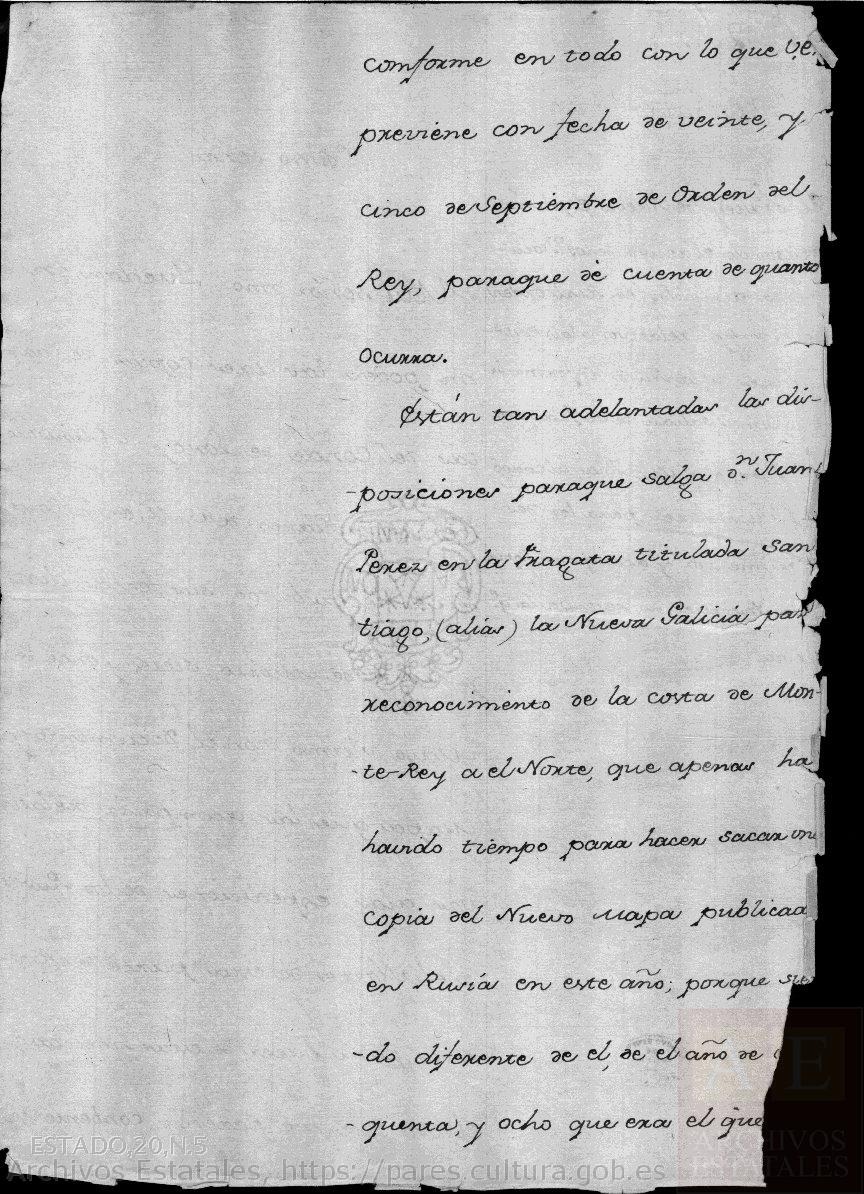 conforme en todo con lo que Ve.
previene con fecha de veinte, y
cinco de Septiembre de Orden del
Rey, paraque dè cuenta de quanto
ocurra.
Están tan adelantadas las dis-
-posiciones paraque salga Dn. Juan
Perez en la Fragata titulada San
tiago, (alias) la Nueva Galicia pa
reconocimiento de la costa de Mon-
-te-Rey a el Norte, que apenas ha
havido tiempo para hacer sacar un
copia del Nuevo Mapa publicad
en Rusia en este año; porque sie
-do diferente de el, de el año de
-quenta, y ocho que era el que
ESTADO,20,N.5
Archivos Estatales, https://pares.cultura.gob.es
AE
ARCHIVOS
ESTATALES